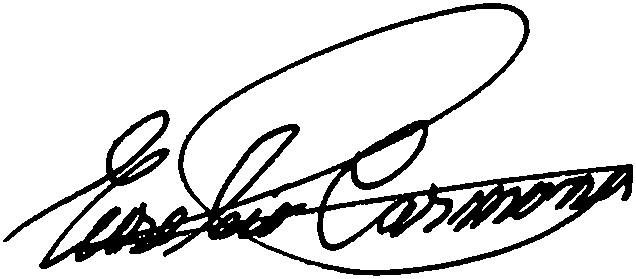 Eusebio Carmona